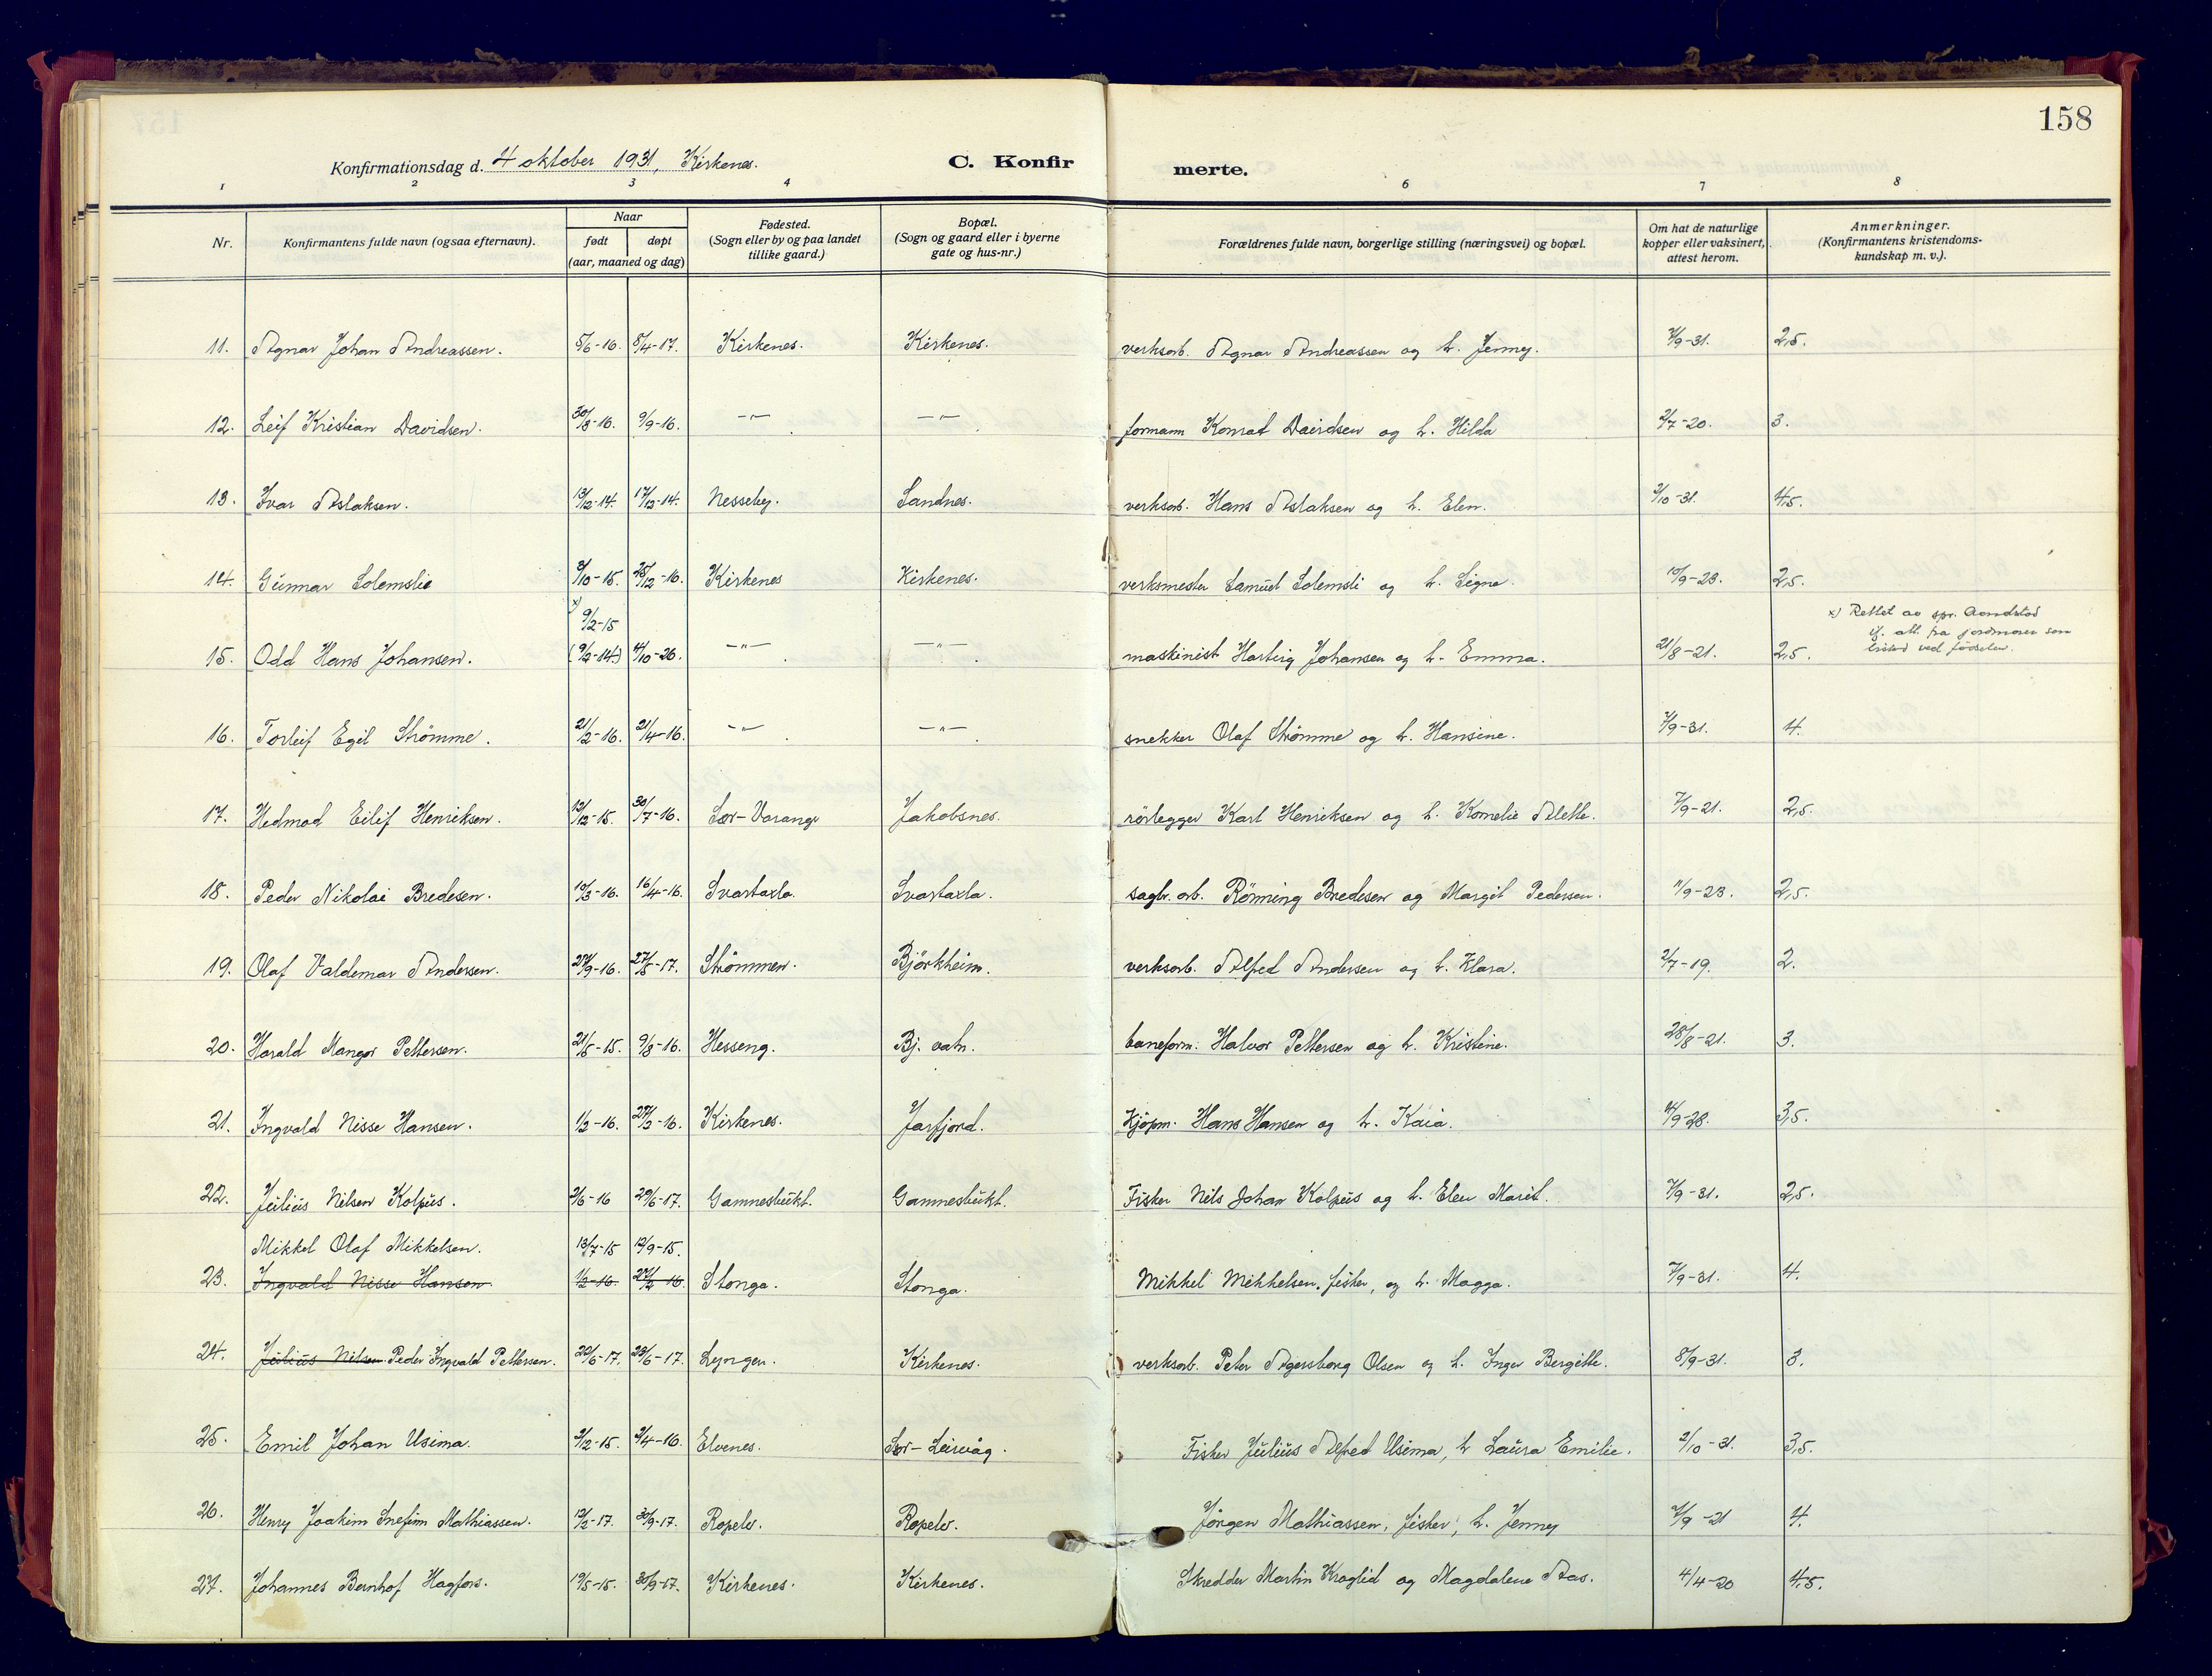 158
Konfirmationsdag d. 4 oktober 1931, Kirkenes. C. Konfirmerte.
1 2 3 4 6 7 8
Nr. Konfirmantens fulde navn (ogsaa efternavn). Naar født døpt (aar, maaned og dag) Fødested. (Sogn eller by og paa landet tillike gaard.) Bopæl. (Sogn og gaard eller i byerne gate og hus-nr.) Forældrenes fulde navn, borgerlige stilling (næringsvei) og bopæl. Om hat de naturlige kopper eller vaksinert, attest herom. Anmerkninger. (Konfirmantens kristendomskundskap m. v.).
11. Agnar Johan Andreassen. 5/6-16. 8/4-17. Kirkenes. Kirkenes. verksarb. Agnar Andreassen og h. Jenny. 7/9-31. 2,5.
12. Leif Kristian Davidsen. 30/8-16. 9/9-16. -"- -"- formann Konrad Davidsen og h. Hilda 2/7-20. 3.
13. Ivar Aslaksen. 13/12-14. 17/12-14. Nesseby. Sandnes. verksarb. Hans Aslaksen og h. Elen. 2/10-31. 4,5.
14. Gunnar Solemslie 2/10-15. 25/12-16. Kirkenes Kirkenes. verksmester Samuel Solemsli og h. Signe. 10/9-28. 2,5.
x) 9/2-15
15. Odd Hans Johansen. (9/2-14) 4/10-26. -"- -"- maskinist Hartvig Johansen og h. Emma. 21/8-21. 2,5. x) Rettet av spr. Aandstad if. att. fra jordmoren som bistod ved fødselen.
16. Torleif Egil Strömme. 21/2-16. 21/4-16. -"- -"- snekker Olaf Strömme og h. Hansine. 7/9-31. 4.
17. Hedmod Eilif Henriksen. 12/12-15. 30/7-16. Sør-Varanger Jakobsnes. rörlegger Karl Henriksen og h. Kornelie Alette. 7/9-21. 2,5.
18. Peder Nikolai Bredesen. 10/3-16. 16/4-16. Svartaxla. Svartaxla. sagbr. arb. Rönning Bredesen og Margit Pedersen. 11/9-23. 2,5.
19. Olaf Valdemar Andersen. 24/9-16. 27/5-17. Strömmen. Björkheim. verksarb. Alfred Andersen og h. Klara. 2/7-19. 2.
20. Harald Mangor Pettersen. 21/5-15. 9/8-16. Hesseng. Bj. vatn. baneform. Halvor Pettersen og h. Kristine. 28/8-21. 3.
21. Ingvald Nisse Hansen. 1/2-16. 27/2-16. Kirkenes. Jarfjord. Kjöpm. Hans Hansen og h. Kaia. 11/9-28. 3,5.
22. Julius Nilsen Kolpus. 2/6-16 29/6-17. Gamnesbukt. Gamnesbukt. Fisker Nils Johan Kolpus og h. Elen Marit. 7/9-31. 2,5.
Mikkel Olaf Mikkelsen. 13/7-15 12/9-15.
23. Ingvald Nisse Hansen. 1/2-16. 27/2-16. Stonga. Stonga. Mikkel Mikkelsen, fisker, og h. Magga. 7/9-31. 4.
24. Julius Nilsen Peder Ingvald Pettersen. 22/6-17. 23/6-17. Lyngen. Kirkenes. verksarb. Peter Agersborg Olsen og h. Inger Bergitte. 8/9-31. 3.
25. Emil Johan Usima. 9/12-15. 9/4-16. Elvenes. Sør-Leirvåg. Fisker Julius Alfred Usima, h Laura Emilie. 2/10-31. 3,5.
26. Henry Joakim Snefrim Mathiassen. 12/2-17. 30/9-17. Ropelv. Ropelv. Jörgen Mathiassen, fisker, h. Jenny 7/9-21 4.
27. Johannes Bernhof Hagfors. 19/5-15. 30/9-17. Kirkenes. Kirkenes. Skredder Martin Kroglid og Magdalene Aas. 4/4-20 4,5.